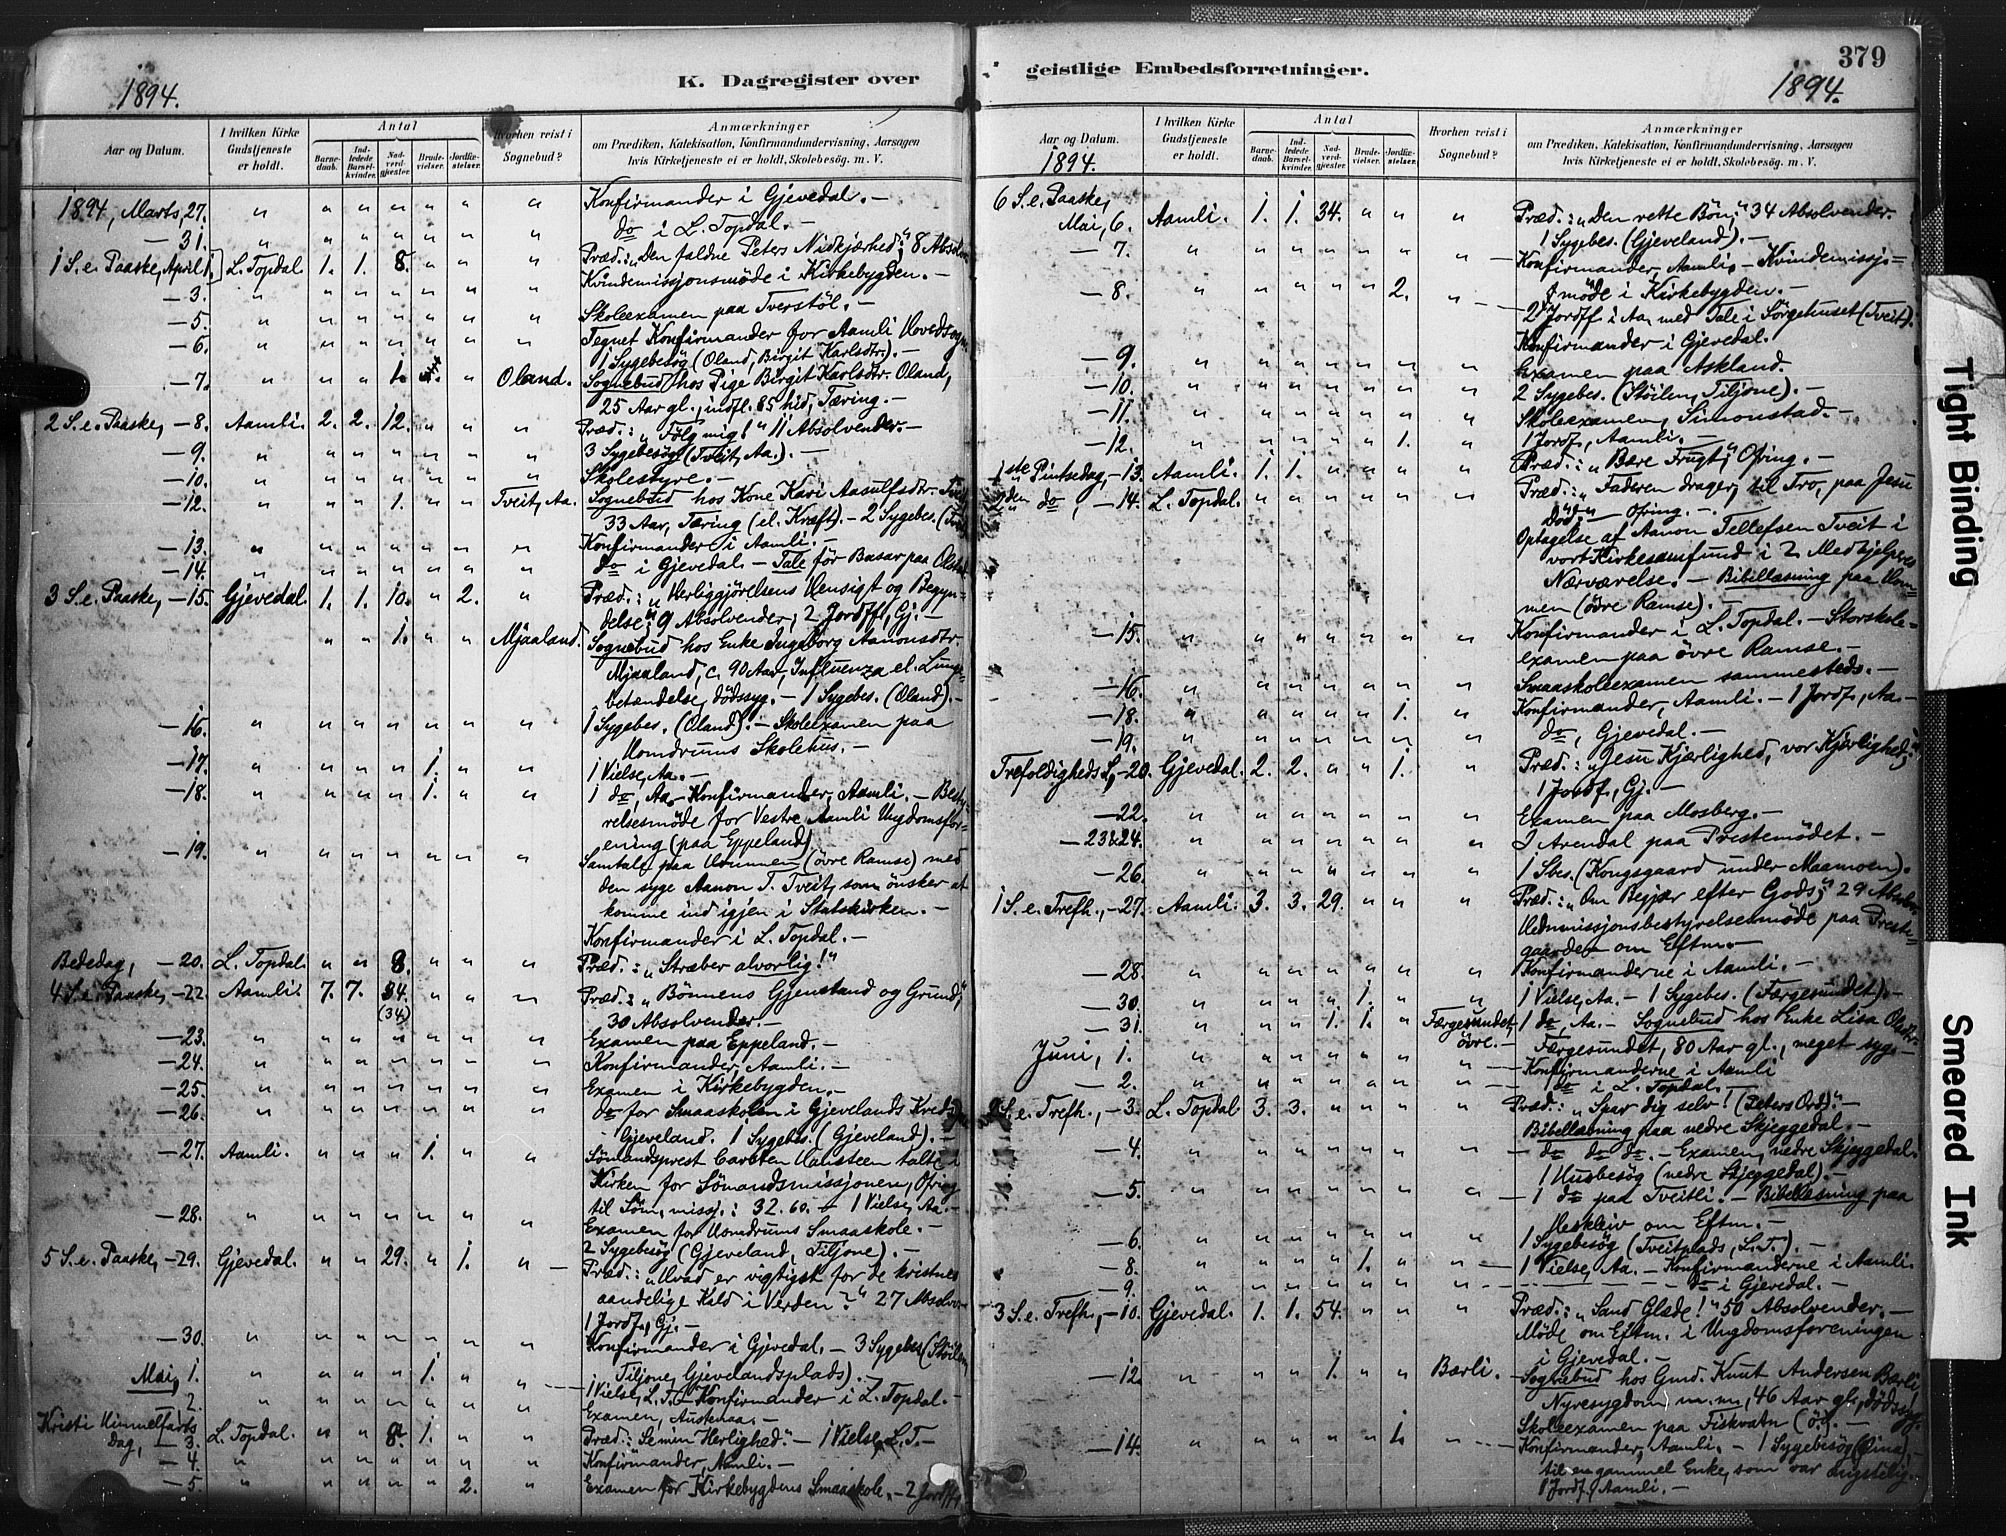 K. Dagregister over
1894.
Aar og Datum.
I hvilken Kirke Gudstjeneste er holdt.
Antal
Barnedaab.
Indledede Barselkvinder.
Nadverdgjester.
Brudevielser.
Jordfæstelser.
Hvorhen reist i Sognebud?
Anmærkninger
om Prædiken, Katekisation, Konfirmandundervisning, Aarsagen
hvis Kirketjeneste ei er holdt, Skolebesög. m. V.
1894, Marts, 27. " " " " " " " Konfirmander i Gjevedal. —
— 31. " " " " " " " do i L. Topdal. —
1 S. e. Paaske, April 1. L. Topdal 1. 1. 8. " " " Præd.: „Den faldne Peters Nidkjærhed;" 8
— 3. " " " " " " " Kvindemissjonsmöde i Kirkebygden. —
— 5. " " " " " " " Skoleexamen paa Tverstöl. —
— 6. " " " " " " " Tegnet Konfirmander for Aamli Hovedsogn.
1 Sygebesög (Oland, Birgit Karlsdtr.). —
— 7. " " " 1. " Oland. Sognebud hos Pige Birgit Karlsdtr. Oland,
25 Aar gl., indfl. 85 hid, Tæring. —
2 S. e. Paaske, — 8. Aamli. 2. 2. 12. " " " Præd.: „Fölg mig!" 11 Absolvender. —
— 9. " " " " " " " 3 Sygebesög (Tveit, Aa.). —
— 10. " " " " " " " Skolestyre. —
— 12. " " " 1. " " Tveit, Aa. Sognebud hos Kone Kari Aasulfsdtr.
33 Aar, Tæring (el. Kræft). — 2 Sygebes.
— 13. " " " " " " " Konfirmander i Aamli. —
— 14. " " " " " " " do i Gjevedal. — Tale för Basar paa
3 S. e. Paaske, — 15. Gjevedal. 1. 1. 10. " 2. " Præd.: „Herliggjörelsens Hensigt og Begyn=
delse;" 9 Absolvender; 2 Jordff., Gj. —
" " 1. " " Mjaaland. Sognebud hos Enke Ingeborg Aanonsdtr.
Mjaaland, c. 90 Aar, Influenza el. Lunge=
betændelse, dödssyg. — 1 Sygebes. (Oland). —
— 16. " " " " " " " 1 Sygebes. (Oland). — Skoleexamen paa
Homdrums Skolehus. —
— 17. " " " " 1. " " 1 Vielse, Aa. —
— 18. " " " " 1. " " 1 do, Aa. — Konfirmander, Aamli. — Besty=
relsesmöde for Vestre Aamli Ungdomsfor=
ening (paa Eppeland)
— 19. " " " " " " " Samtale paa Hommen (övre Ramse) med
den syge Aanon T. Tveit, som önsker at
komme ind igjen i Statskirken. —
Konfirmander i L. Topdal. —
Bededag, — 20. L. Topdal. " " 8. " " " Præd.: „Stræber alvorlig!"
4 S. e. Paaske, — 22. Aamli. 7. 7. 34. " " " Præd.: „Bönnens Gjenstand og Grund;"
(34) 30 Absolvender. —
— 23. " " " " " " " Examen paa Eppeland. —
— 24. " " " " " " " Konfirmander, Aamli. —
— 25. " " " " " " " Examen i Kirkebygden. —
— 26. " " " " " " " do for Smaaskolen i Gjevelands Kreds,
Gjeveland. 1 Sygebes. (Gjeveland). —
— 27. Aamli. " " " 1. " " Sömandsprest Carsten Hansteen talte i
Kirken for Sömandsmissjonen, Ofring
til Söm. missj.: 32.60. — 1 Vielse, Aa. —
— 28. " " " " " " " Examen for Homdrums Smaaskole. —
2 Sygebesög (Gjeveland, Tiljone). —
5 S. e. Paaske, — 29. Gjevedal. " " 29. " 1. " Præd.: „Hvad er vigtigst for de kristnes
aandelige Kald i Verden?" 27
1 Jordf., Gj. —
— 30. " " " " " " " Konfirmander i Gjevedal. — 3 Sygebes. (Stöilen,
Tiljone, Gjevelandsplads). —
Mai, 1. " " " " 1. " " 1 Vielse, L. T. — Konfirmander i L. Topdal. —
— 2. " " " " " " " Examen, Austenaa. —
Kristi Himmelfarts
Dag, — 3. L. Topdal. " " 8. 1. " " Præd.: Herlighed." — 1 Vielse, L. T. —
— 4. " " " " " " " Konfirmander, Aamli. —
— 5. " " " " " 2. " Examen for Kirkebygdens Smaaskole. — 2
geistlige Embedsforretninger.
379
1894.
Aar og Datum.
1894.
I hvilken Kirke Gudstjeneste er holdt.
Antal
Barnedaab.
Indledede Barselkvinder.
Nadverdgjester.
Brudevielser.
Jordfæstelser.
Hvorhen reist i Sognebud?
Anmærkninger
om Prædiken, Katekisation, Konfirmandundervisning, Aarsagen
hvis Kirketjeneste ei er holdt, Skolebesög. m. V.
6 S. e. Paaske,
Mai, 6. Aamli. 1. 1. 34. " " " Præd.: „Den rette Bön;" 34 Absolvender.
1 Sygebes. (Gjeveland). —
— 7. " " " " " " " Konfirmander, Aamli. — Kvindemissjs=
möde i Kirkebygden. —
— 8. " " " " " 2. " 2 Jordff. i Aa. med Tale i Sörgehuset (Tveit).
Konfirmander i Gjevedal.
— 9. " " " " " " " Examen paa Askland. —
— 10. " " " " " " " 2 Sygebes. (Stöilen, Tiljone). —
— 11. " " " " " " " Skoleexamen, Simonstad. —
— 12. " " " " " 1. " 1 Jordf., Aamli. —
1ste Pintsedag, — 13. Aamli. 1. 1. " " " " Præd.: „Bære Frugt;" Ofring. —
2den do, — 14. L. Topdal. " " " " " " Præd.: „Faderen drager, til Tro, paa Jesu
Död;" — Ofring. —
Optagelse af Aanon Tellefsen Tveit i
vort Kirkesamfund i 2 Medhjelperes
Nærværelse. — Bibellæsning paa Hom=
men (övre Ramse). —
— 15. " " " " " " " Konfirmander i L. Topdal. — Storskole=
examen paa övre Ramse. —
— 16. " " " " " " " Smaaskoleexamen sammesteds. —
— 18. " " " " " 1. " Konfirmander, Aamli. — 1 Jordf., Aa. —
— 19. " " " " " " " do, Gjevedal. —
Trefoldigheds S., — 20. Gjevedal. 2. 2. " " 1. " Præd.: „Jesu Kjærlighed, vor Kjærlighed;"
1 Jordf., Gj. —
— 22. " " " " " " " Examen paa Mosberg. —
— 23 & 24. " " " " " " " I Arendal paa Prestemödet. —
— 26. " " " " " " " 1 Sbes. (Kongsgaard under Maamoen).
1 S. e. Trefh., — 27. Aamli. 3. 3. 29. " " " Præd.: „Om Begjær efter Gods;" 29
Hedmissjonsbestyrelsesmöde paa Preste=
gaarden om Eftm. —
— 28. " " " " " " " Konfirmanderne i Aamli. —
— 30. " " " " 1. " " 1 Vielse, Aa. — 1 Sygebes. (Færgesundet). —
— 31. " " " 1. 1. " Færgesundet, övre. — 1 do, Aa. — Sognebud hos Enke Lisa
Færgesundet, 80 Aar gl., meget syg. —
Juni, 1. " " " " " " " Konfirmanderne i Aamli
— 2. " " " " " " " do i L. Topdal. —
2 S. e. Trefh., — 3. L. Topdal 3. 3. " " " " Præd.: „Spar dig selv! (Peters Ord)." —
Bibellæsning paa nedre Skjeggedal. —
— 4. " " " " " " " do do do. — Examen, nedre Skjeggedal.
1 Husbesög (nedre Skjeggedal). —
— 5. " " " " " " " 1 do paa Tveitli. — Bibellæsning paa
Heskleiv om Eftm. —
— 6. " " " " " " " 1 Sygebesög (Tveitplads, L. T.). —
— 8. " " " " 1. " " 1 Vielse, Aa. — Konfirmanderne i Aamli.
— 9. " " " " " " " do i Gjevedal. —
3 S. e. Trefh., — 10. Gjevedal. 1. 1. 54. " " " Præd.: „Sand Glæde!" 50 Absolvender. —
Möde om Eftm. i Ungdomsforeningen
i Gjevedal. —
— 12. " " " 1. " " Barli. Sognebud hos Gmd. Knut Andersen Barli
Nyresygdom m. m., 46 Aar gl.,
Skoleexamen paa Fiskvatn (ö.). —
— 14. " " " " " 1. " Konfirmander, Aamli. — 1 Sygebesög
til en gammel Enke, som var ængstelig. —
1 Jordf., Aamli. —
Tight Binding
Smeared Ink